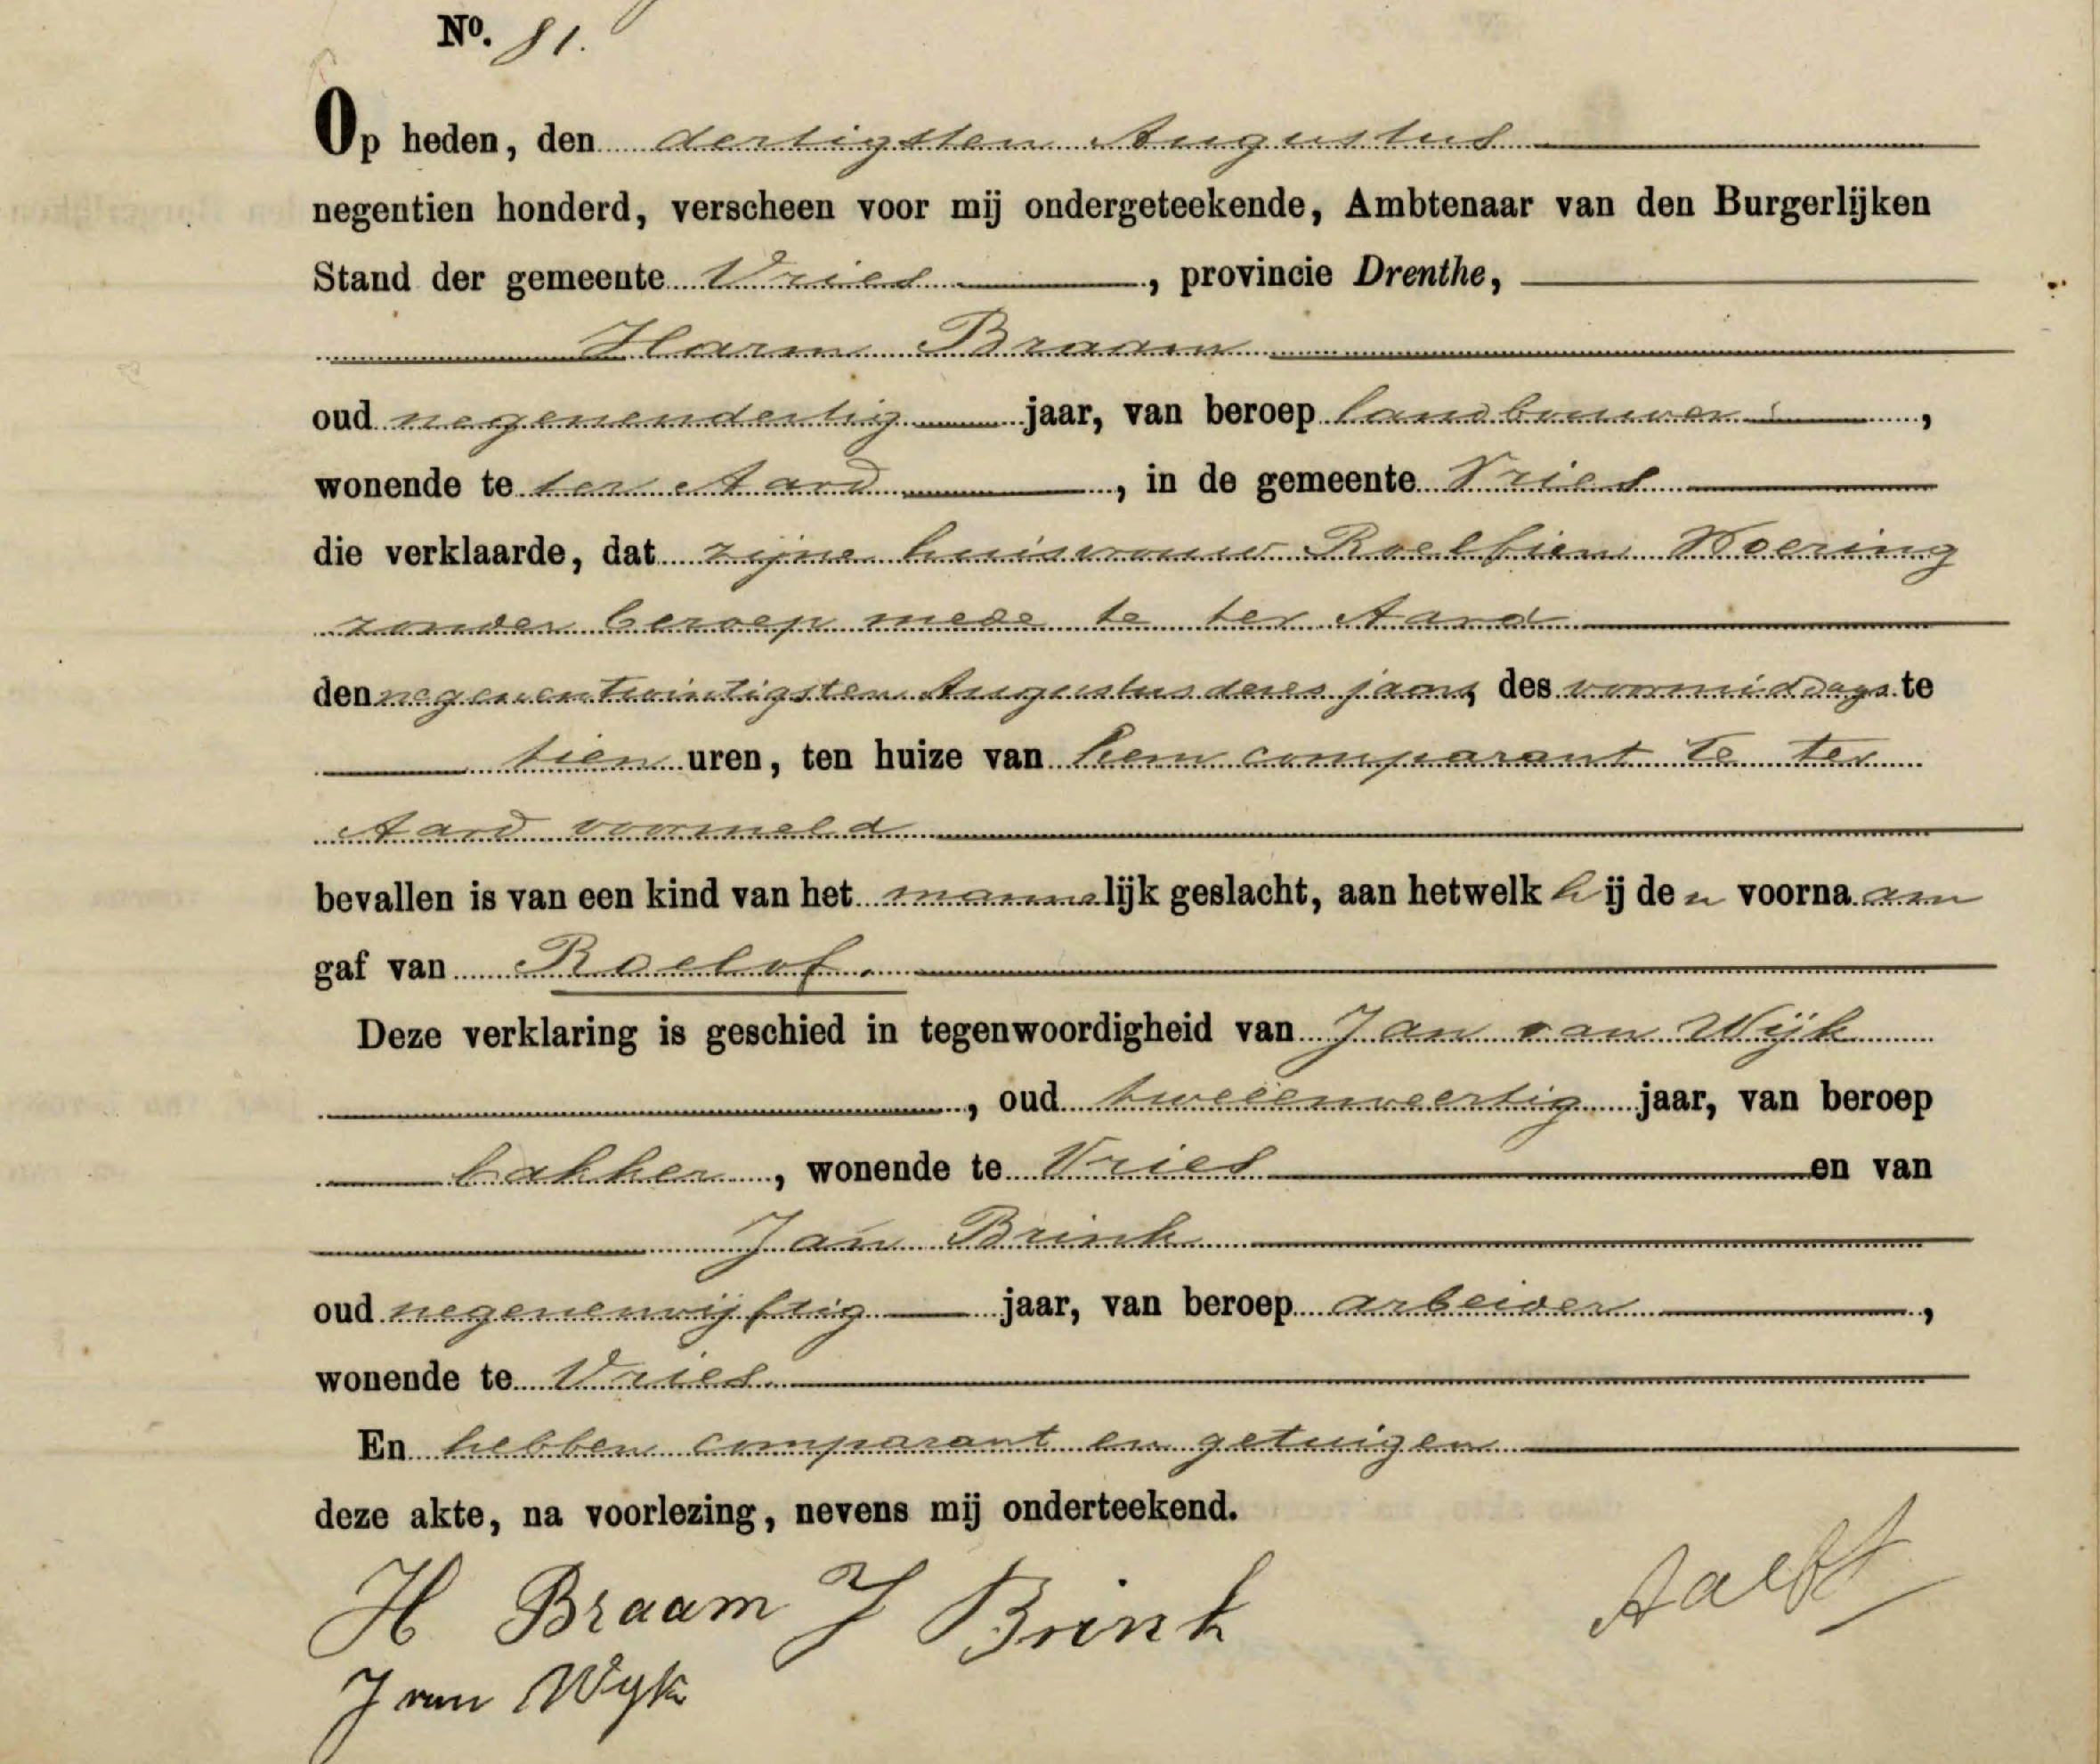 Nº. 81.
Op heden, den dertigsten Augustus
negentien honderd, verscheen voor mij ondergeteekende, Ambtenaar van den Burgerlijken
Stand der gemeente Vries, provincie Drenthe,
Harm Braam
oud negenendertig jaar, van beroep landbouwer,
wonende te ter Aard, in de gemeente Vries
die verklaarde, dat zijne huisvrouw Roelfien Woering
zonder beroep mede te ter Aard
den negenentwintigsten Augustus dezes jaars, des voormiddags te
tien uren, ten huize van hem comparant te ter
Aard voormeld
bevallen is van een kind van het mannelijk geslacht, aan hetwelk hij den voornaam
gaf van Roelof.
Deze verklaring is geschied in tegenwoordigheid van Jan van Wijk
, oud tweeënveertig jaar, van beroep
bakker, wonende te Vries en van
Jan Brink
oud negenenvijftig jaar, van beroep arbeider,
wonende te Vries
En hebben comparant en getuigen
deze akte, na voorlezing, nevens mij onderteekend.
H Braam J Brink
J van Wyk